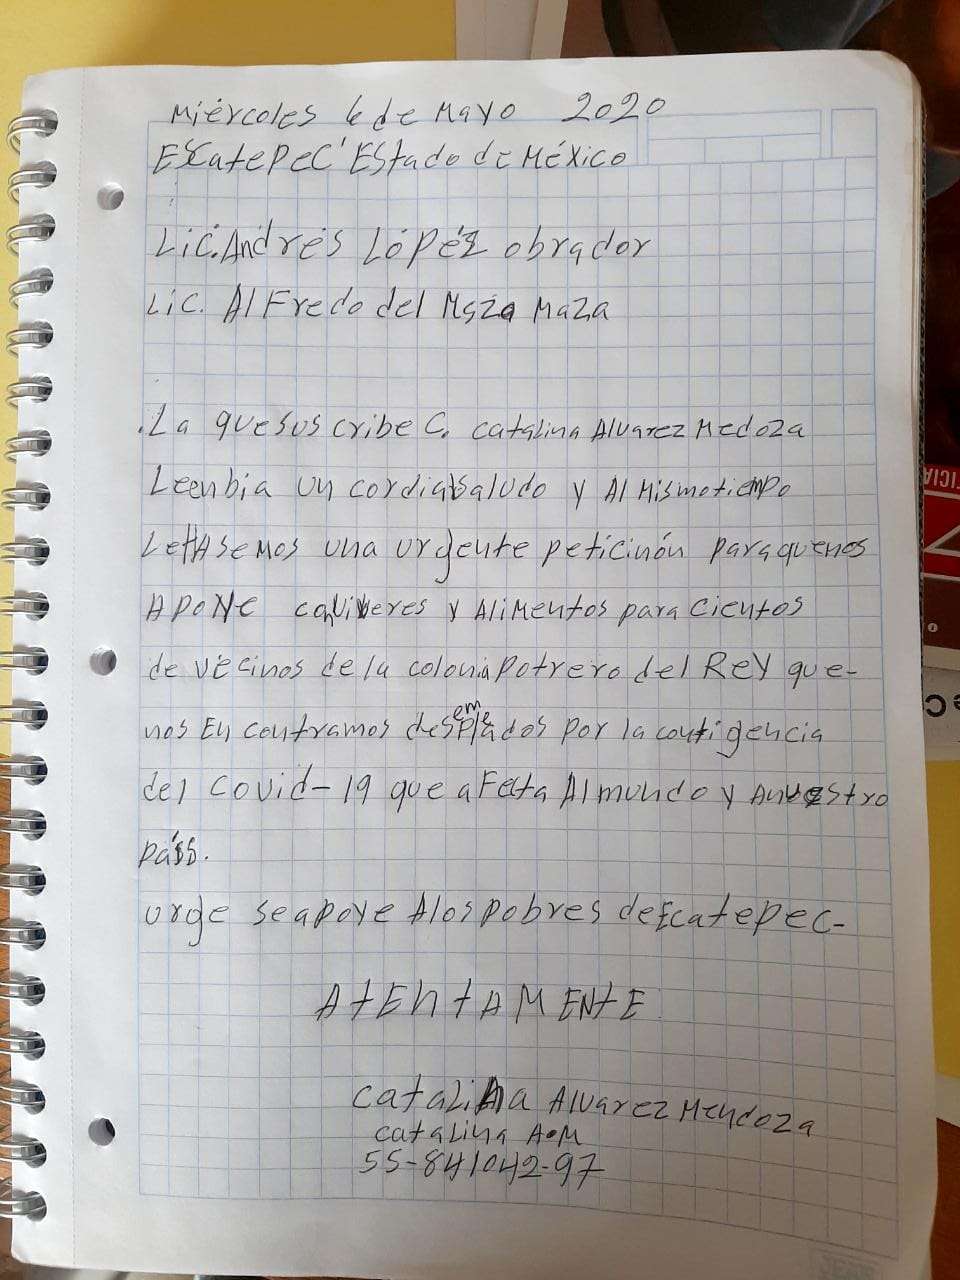 Miércoles 6 de Mayo 2020
EscatePec Estado de México
Lic. Andrés López obrador
Lic. AlFredo del Maza Maza
.La quesus cribe C. catalina Alvarez Medoza
Leenbia un cordial saludo y Al Mismotiempo
LeHAsemos una urgente peticinón paraquenos
APoYe con viberes y Alimentos para Cientos
de vecinos de la colonia potrero del Rey que-
nos En contramos desempleados por la contigencia
del Covid-19 que a Fecta Al mundo y Anuestro
país.
urge seapoye Alospobres deEcatepec-
AtEntAMENtE
catalina Alvarez Mendoza
catalina A.M
55-841042-97
ICIA